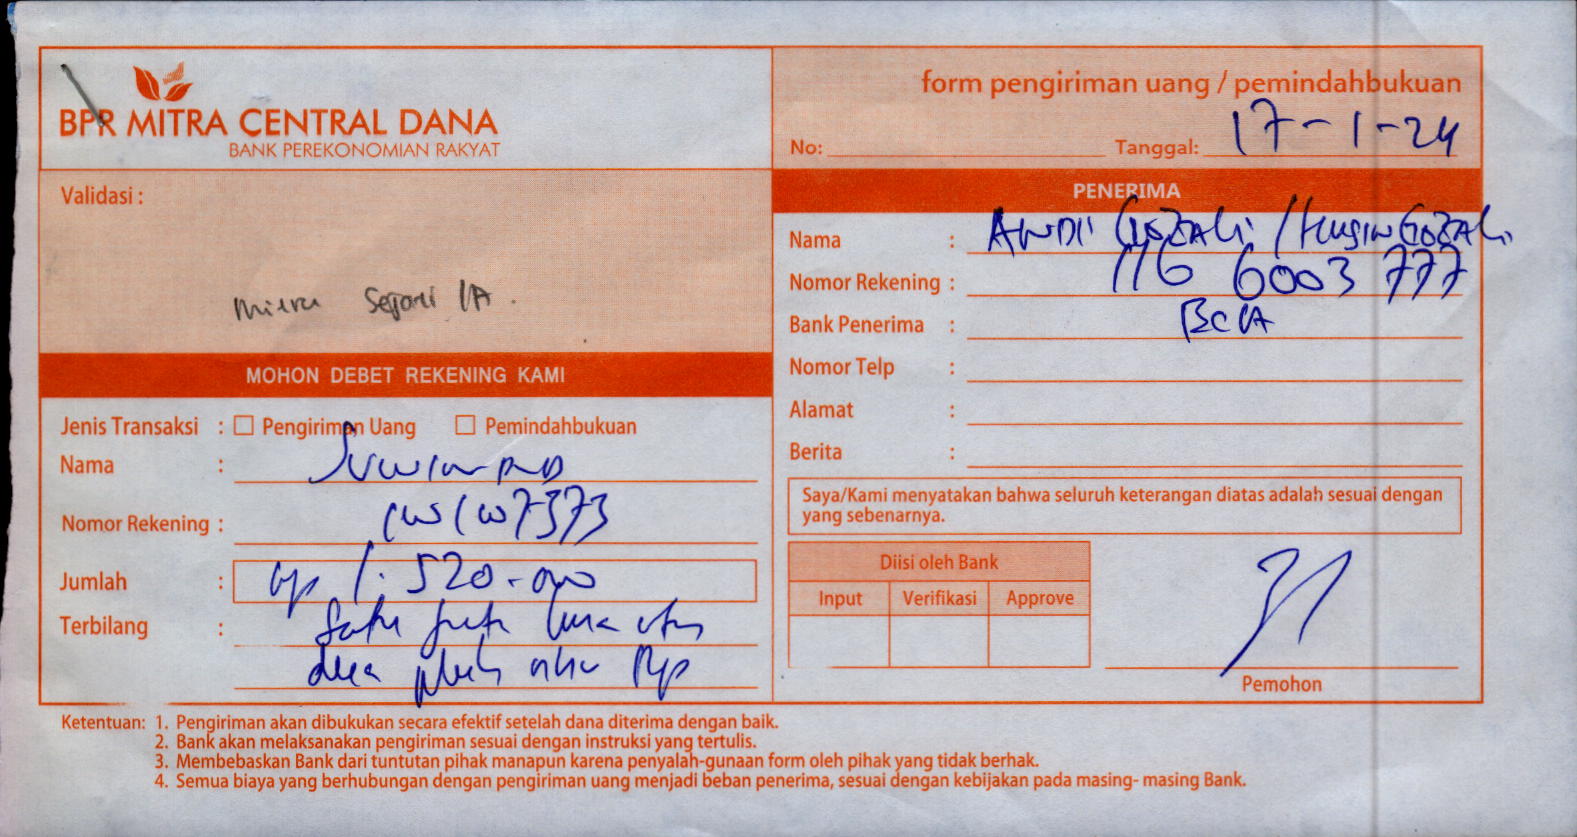 BPR MITRA CENTRAL DANA
BANK PEREKONOMIAN RAKYAT
form pengiriman uang / pemindahbukuan
No:
Tanggal: 17-1-24
Validasi :
Mitra Sejati
MOHON DEBET REKENING KAMI
Jenis Transaksi : Pengiriman Uang Pemindahbukuan
Nama :
Nomor Rekening : 7373
Jumlah : Rp 1.520.000
Terbilang : Satu juta lima ratus
dua puluh ribu Rp
PENERIMA
Nama : ANDI GOZALI / HUSIN GOZALI
Nomor Rekening : 116 6003 777
Bank Penerima : BCA
Nomor Telp :
Alamat :
Berita :
Saya/Kami menyatakan bahwa seluruh keterangan diatas adalah sesuai dengan
yang sebenarnya.
Diisi oleh Bank
Input Verifikasi Approve
Pemohon
Ketentuan: 1. Pengiriman akan dibukukan secara efektif setelah dana diterima dengan baik.
2. Bank akan melaksanakan pengiriman sesuai dengan instruksi yang tertulis.
3. Membebaskan Bank dari tuntutan pihak manapun karena penyalah-gunaan form oleh pihak yang tidak berhak.
4. Semua biaya yang berhubungan dengan pengiriman uang menjadi beban penerima, sesuai dengan kebijakan pada masing- masing Bank.